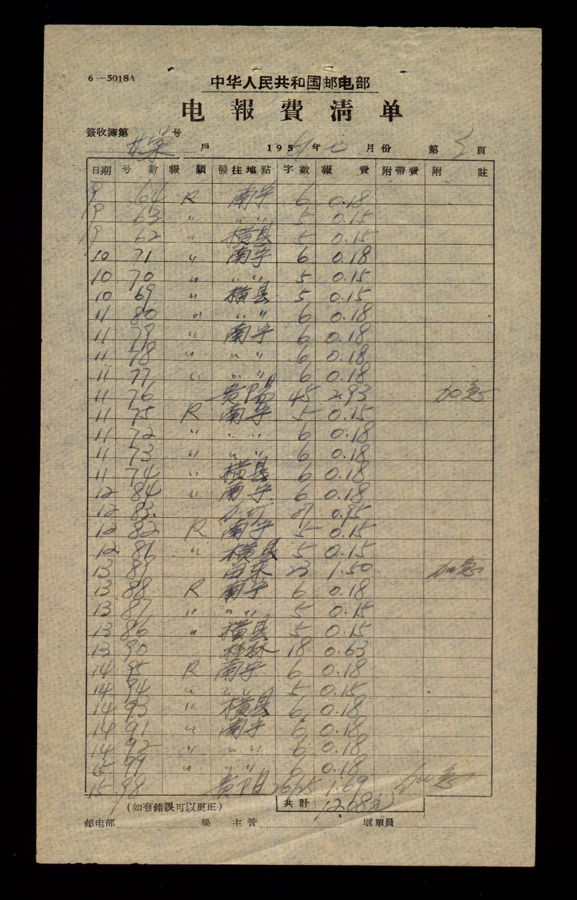 6—5018A
中华人民共和国邮电部
电報費清单
簽收簿第 号
戶 195 年 七 月份 第 頁
日期 号數 報類 發往地點 字數 報費 附帶費 附註
9 64 R 南宁 6 0.18
9 63 〃 〃 〃 5 0.15
9 62 〃 横县 5 0.15
10 71 〃 南宁 6 0.18
10 70 〃 〃 〃 5 0.15
10 69 〃 横县 5 0.15
11 80 〃 〃 〃 6 0.18
11 79 〃 南宁 6 0.18
11 78 〃 〃 〃 6 0.18
11 77 〃 〃 〃 6 0.18
11 76 贵阳 45 2.93 加急
11 75 R 南宁 5 0.15
11 72 〃 〃 〃 6 0.18
11 73 〃 〃 〃 6 0.18
11 74 〃 横县 6 0.18
12 84 〃 南宁 6 0.18
12 83 27 0.95
12 82 R 南宁 5 0.15
12 81 〃 横县 5 0.15
13 89 23 1.50 加急
13 88 R 南宁 6 0.18
13 87 〃 〃 〃 5 0.15
13 86 〃 横县 5 0.15
13 90 18 0.63
14 95 R 南宁 6 0.18
14 94 〃 〃 〃 5 0.15
14 93 〃 横县 6 0.18
14 91 〃 南宁 6 0.18
14 92 〃 〃 〃 6 0.18
15 99 〃 〃 〃 6 0.18
15 98 贵阳 1.69 加急
(如有錯誤可以更正) 共計 12.68元
邮电部 局 主管 填單員